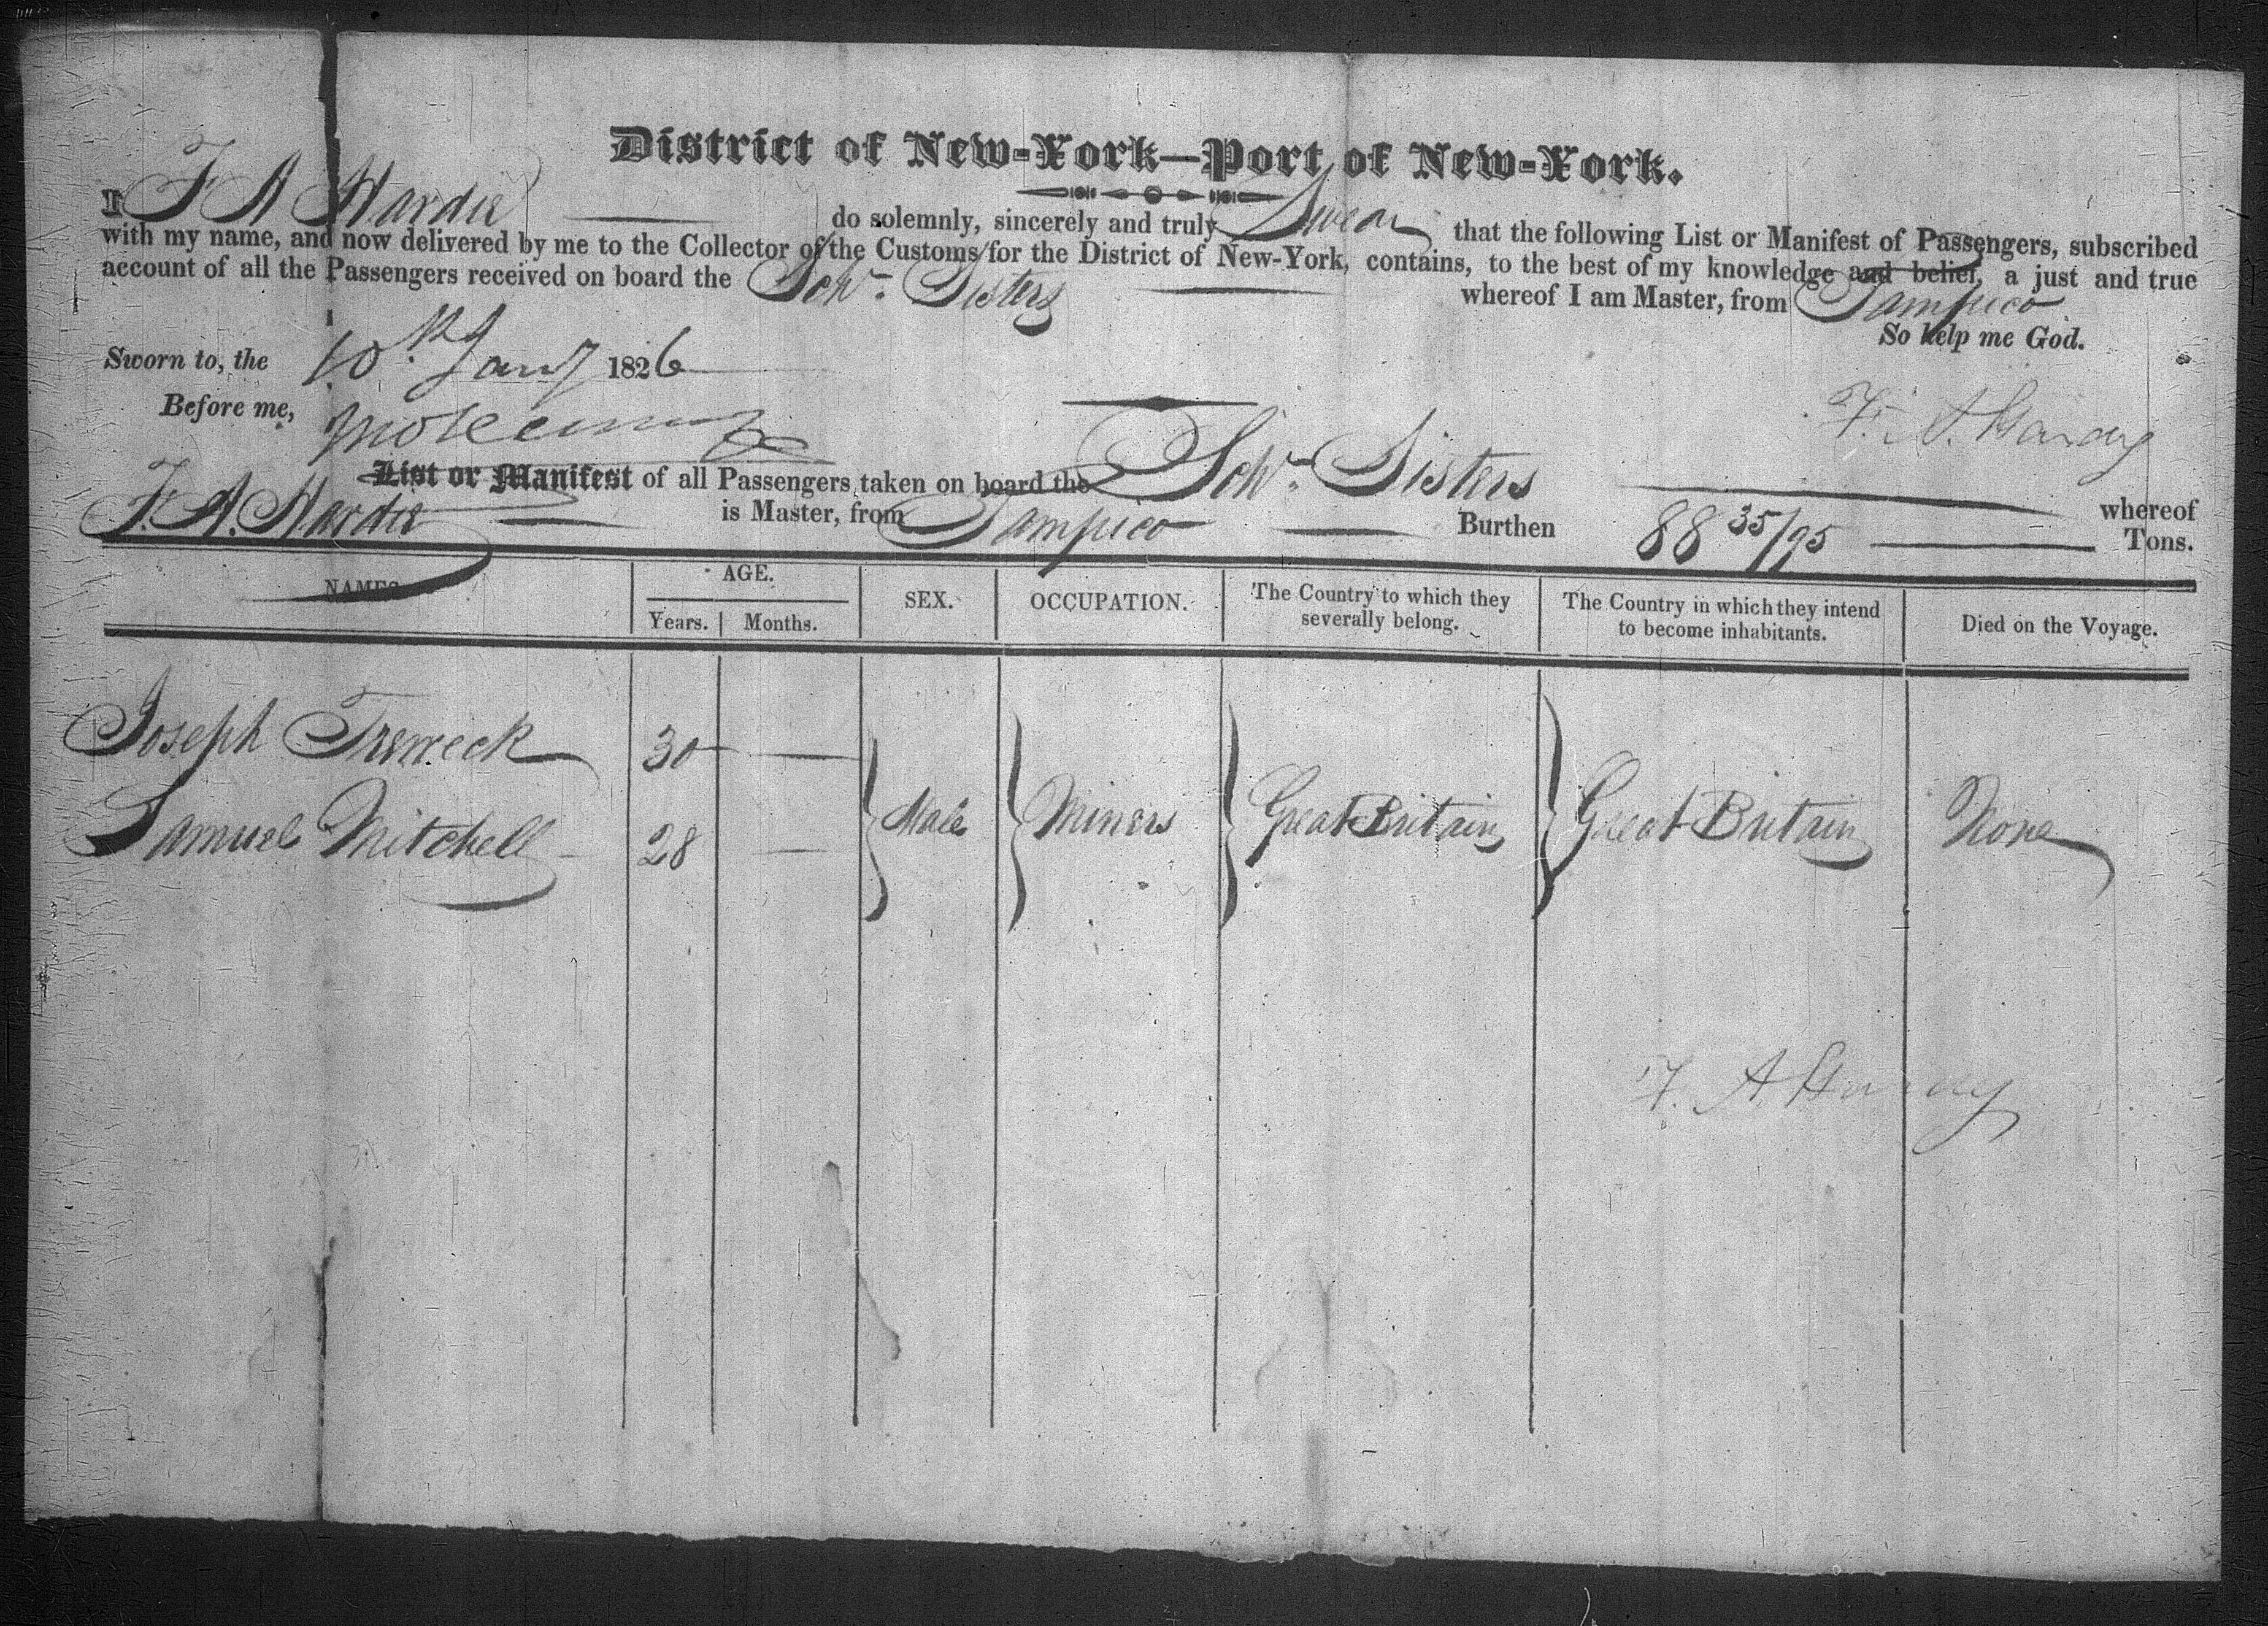 District of New-York—Port of New-York.
I F A Hardie do solemnly, sincerely and truly Swear that the following List or Manifest of Passengers, subscribed
with my name, and now delivered by me to the Collector of the Customs for the District of New-York, contains, to the best of my knowledge and belief, a just and true
account of all the Passengers received on board the Schr. Sisters whereof I am Master, from Tampico
So help me God.
Sworn to, the 10th Jany 1826
Before me,
F. A. Hardy
List or Manifest of all Passengers taken on board the Schr. Sisters whereof
F. A. Hardie is Master, from Tampico Burthen 88 35/95 Tons.
NAMES AGE. Years. Months. SEX. OCCUPATION. The Country to which they severally belong. The Country in which they intend to become inhabitants. Died on the Voyage.
Joseph 30 —
Samuel Mitchell 28 — Male Miners Great Britain Great Britain None
F. A. Hardy